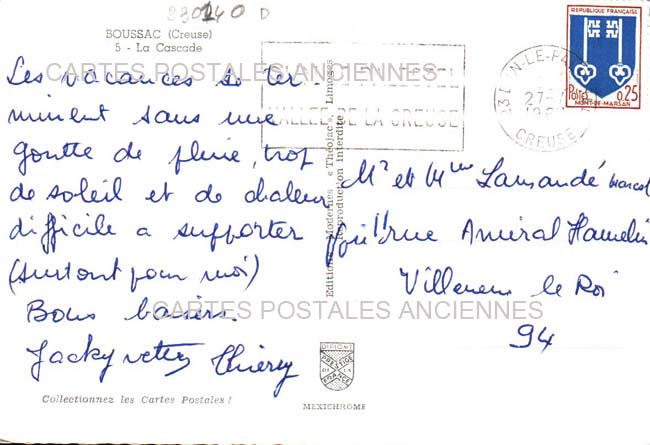 230240 D
BOUSSAC (Creuse)
5 - La Cascade
CARTES POSTALES ANCIENNES
Les vacances se ter-
minent sans une
goutte de pluie, trop
de soleil et de chaleur
difficile a supporter
(surtout pour moi)
Bons baisers.
Jacky Thierry
Collectionnez les Cartes Postales !
Editions Modernes « Théojac », Limoges
Reproduction interdite
DIPLOME
PRESTIGE
DE LA
FRANCE
MEXICHROME
VALLEE DE LA CREUSE
LE-PA
27-
CREUSE
REPUBLIQUE FRANÇAISE
POSTES 0,25
MONT-DE-MARSAN
Mr et Mme Lamandé Marcel
11 rue Amiral Hamelin
Villeneuve le Roi
94
CARTES POSTALES ANCIENNES